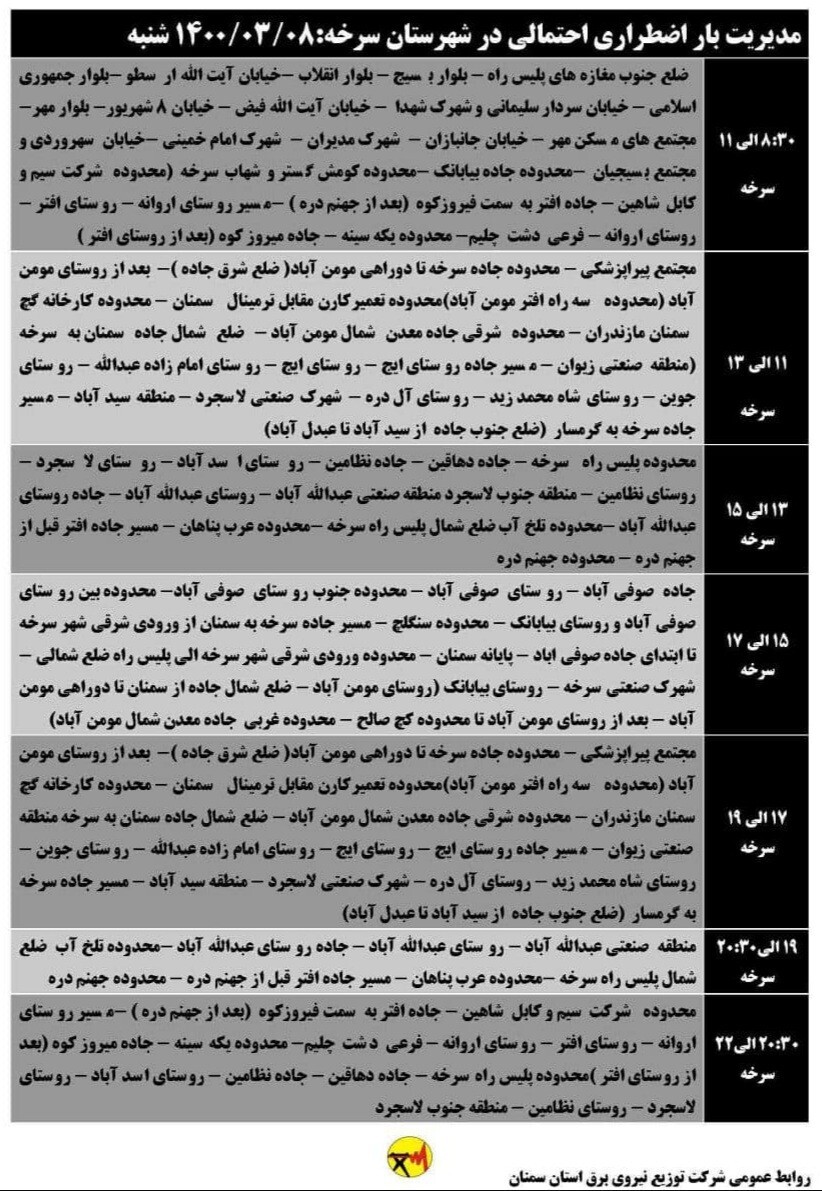 مدیریت بار اضطراری احتمالی در شهرستان سرخه:۱۴۰۰/۰۳/۰۸ شنبه
۸:۳۰ الی ۱۱
سرخه
ضلع جنوب مغازه های پلیس راه – بلوار بسیج – بلوار انقلاب –خیابان آیت الله ار سطو –بلوار جمهوری
اسلامی – خیابان سردار سلیمانی و شهرک شهدا – خیابان آیت الله فیض – خیابان ۸ شهریور– بلوار مهر–
مجتمع های مسکن مهر – خیابان جانبازان – شهرک مدیران – شهرک امام خمینی –خیابان سهروردی و
مجتمع بسیجیان –محدوده جاده بیابانک –محدوده کومش گستر و شهاب سرخه (محدوده شرکت سیم و
کابل شاهین – جاده افتر به سمت فیروزکوه (بعد از جهنم دره ) –مسیر روستای اروانه – روستای افتر –
روستای اروانه – فرعی دشت چلیم– محدوده یکه سینه – جاده میروز کوه (بعد از روستای افتر )
۱۱ الی ۱۳
سرخه
مجتمع پیراپزشکی – محدوده جاده سرخه تا دوراهی مومن آباد( ضلع شرق جاده )– بعد از روستای مومن
آباد (محدوده سه راه افتر مومن آباد)محدوده تعمیرکارن مقابل ترمینال سمنان – محدوده کارخانه گچ
سمنان مازندران – محدوده شرقی جاده معدن شمال مومن آباد – ضلع شمال جاده سمنان به سرخه
(منطقه صنعتی زیوان – مسیر جاده روستای ایج – روستای ایج – روستای امام زاده عبدالله – روستای
جوین – روستای شاه محمد زید – روستای آل دره – شهرک صنعتی لاسجرد – منطقه سید آباد – مسیر
جاده سرخه به گرمسار (ضلع جنوب جاده از سید آباد تا عبدل آباد)
۱۳ الی ۱۵
سرخه
محدوده پلیس راه سرخه – جاده دهاقین – جاده نظامین – روستای اسد آباد – روستای لاسجرد –
روستای نظامین – منطقه جنوب لاسجرد منطقه صنعتی عبدالله آباد – روستای عبدالله آباد – جاده روستای
عبدالله آباد –محدوده تلخ آب ضلع شمال پلیس راه سرخه –محدوده عرب پناهان – مسیر جاده افتر قبل از
جهنم دره – محدوده جهنم دره
۱۵ الی ۱۷
سرخه
جاده صوفی آباد – روستای صوفی آباد – محدوده جنوب روستای صوفی آباد– محدوده بین روستای
صوفی آباد و روستای بیابانک – محدوده سنگلج – مسیر جاده سرخه به سمنان از ورودی شرقی شهر سرخه
تا ابتدای جاده صوفی اباد – پایانه سمنان – محدوده ورودی شرقی شهر سرخه الی پلیس راه ضلع شمالی –
شهرک صنعتی سرخه – روستای بیابانک (روستای مومن آباد – ضلع شمال جاده از سمنان تا دوراهی مومن
آباد – بعد از روستای مومن آباد تا محدوده گچ صالح – محدوده غربی جاده معدن شمال مومن آباد)
۱۷ الی ۱۹
سرخه
مجتمع پیراپزشکی – محدوده جاده سرخه تا دوراهی مومن آباد( ضلع شرق جاده )– بعد از روستای مومن
آباد (محدوده سه راه افتر مومن آباد)محدوده تعمیرکارن مقابل ترمینال سمنان – محدوده کارخانه گچ
سمنان مازندران – محدوده شرقی جاده معدن شمال مومن آباد – ضلع شمال جاده سمنان به سرخه منطقه
صنعتی زیوان – مسیر جاده روستای ایج – روستای ایج – روستای امام زاده عبدالله – روستای جوین –
روستای شاه محمد زید – روستای آل دره – شهرک صنعتی لاسجرد – منطقه سید آباد – مسیر جاده سرخه
به گرمسار (ضلع جنوب جاده از سید آباد تا عبدل آباد)
۱۹ الی ۲۰:۳۰
سرخه
منطقه صنعتی عبدالله آباد – روستای عبدالله آباد – جاده روستای عبدالله آباد –محدوده تلخ آب ضلع
شمال پلیس راه سرخه –محدوده عرب پناهان – مسیر جاده افتر قبل از جهنم دره – محدوده جهنم دره
۲۰:۳۰ الی ۲۲
سرخه
محدوده شرکت سیم و کابل شاهین – جاده افتر به سمت فیروزکوه (بعد از جهنم دره ) –مسیر روستای
اروانه – روستای افتر – روستای اروانه – فرعی دشت چلیم– محدوده یکه سینه – جاده میروز کوه (بعد
از روستای افتر )محدوده پلیس راه سرخه – جاده دهاقین – جاده نظامین – روستای اسد آباد – روستای
لاسجرد – روستای نظامین – منطقه جنوب لاسجرد
روابط عمومی شرکت توزیع نیروی برق استان سمنان